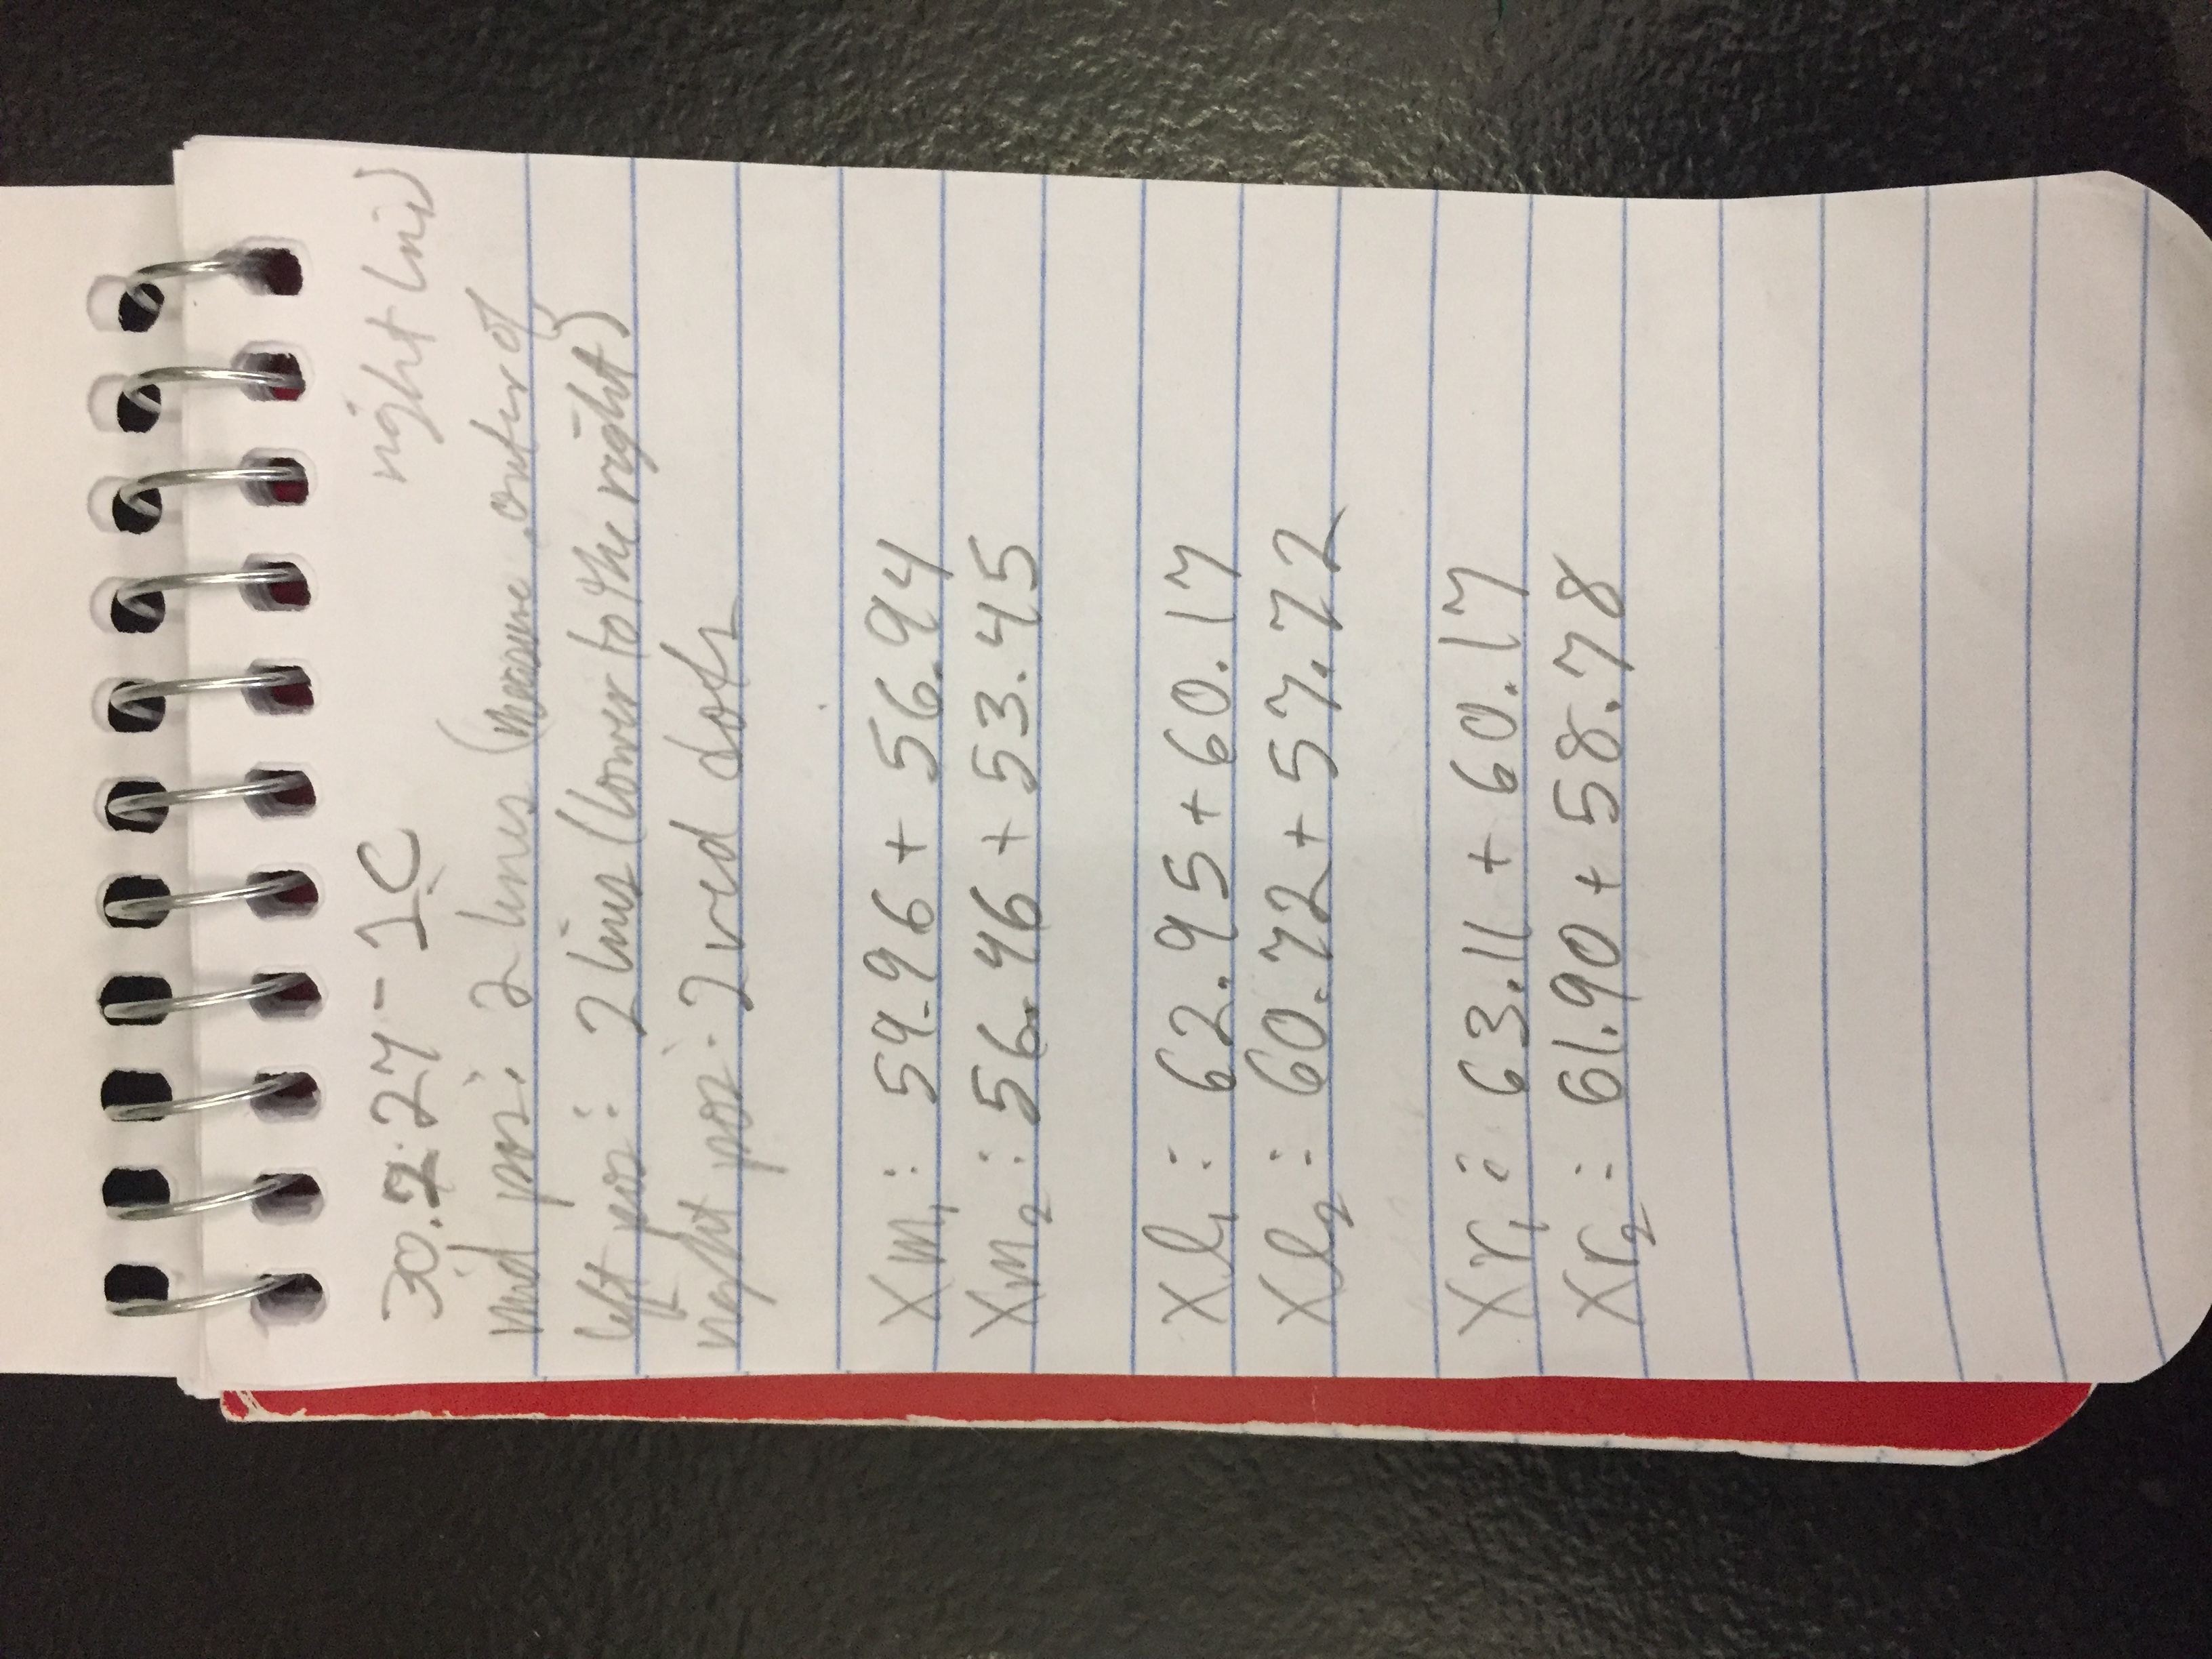 30.2.27-1C
right line)
mid pos: 2 lines (measure outer of
left pos: 2 lines (lower to the right)
right pos: 2 red dots
Xm1: 59.96 + 56.94
Xm2: 56.46 + 53.45
Xl1: 62.95 + 60.17
Xl2: 60.72 + 57.72
Xr1: 63.11 + 60.17
Xr2: 61.90 + 58.78